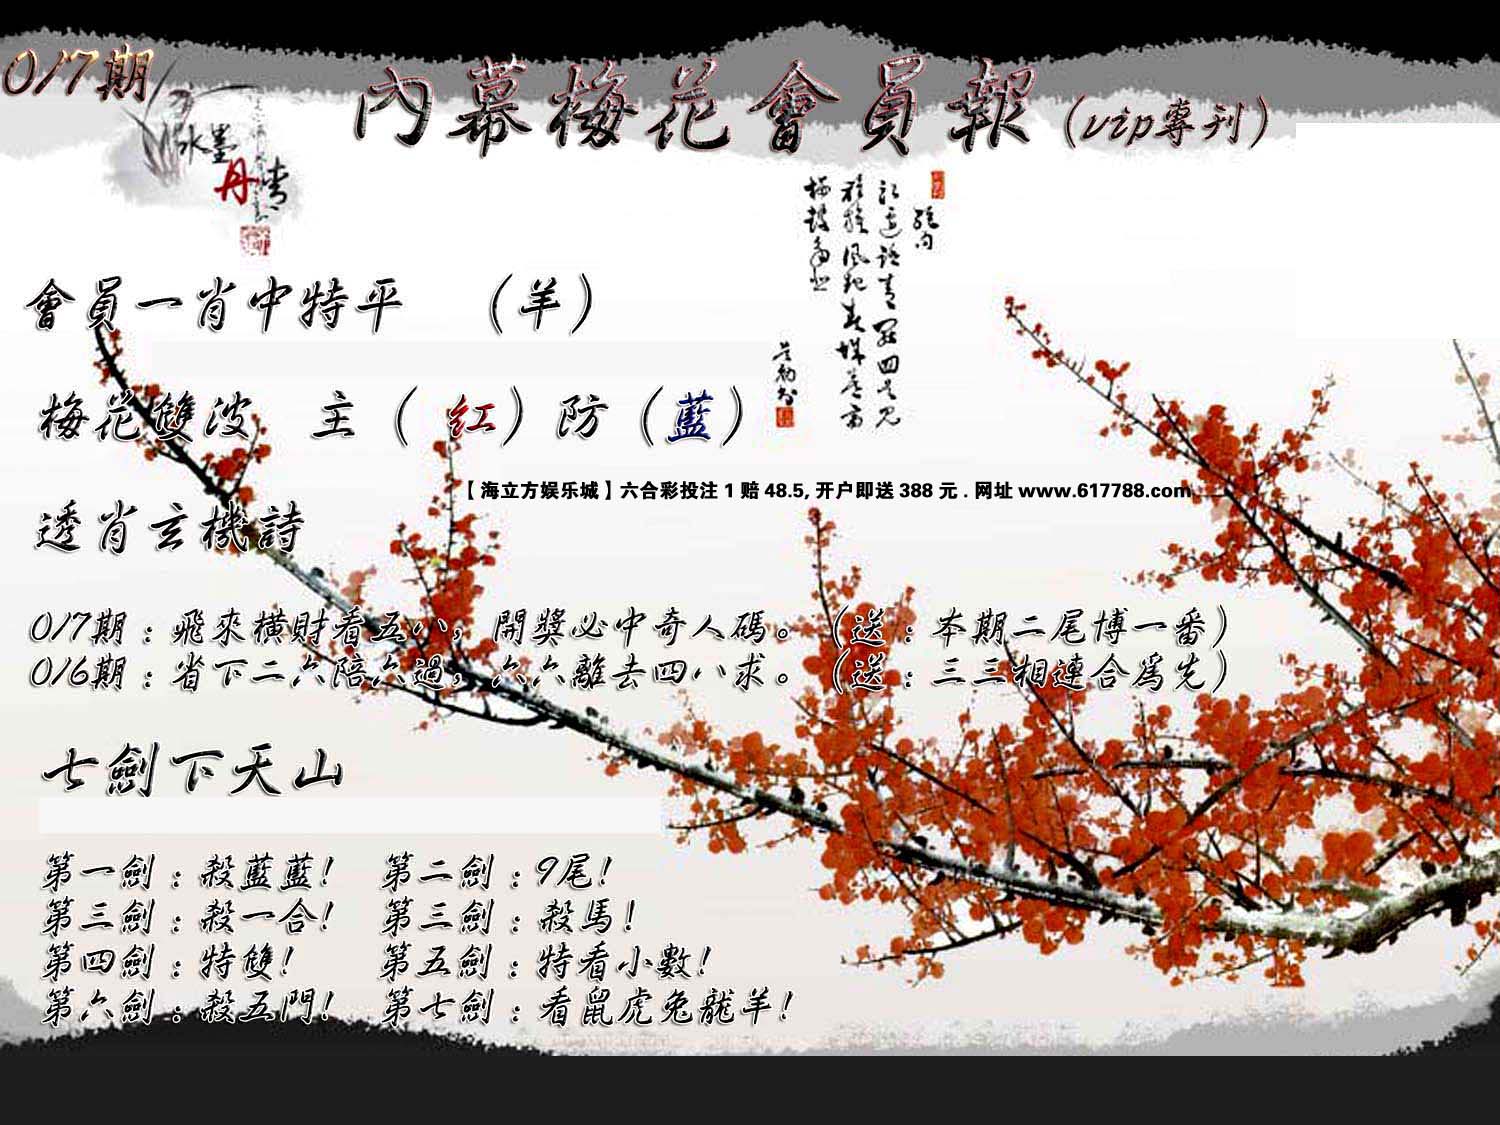 017期
內幕梅花會員報(vip專刊)
水墨
丹青
會員一肖中特平 (羊)
梅花雙波 主(紅)防(藍)
【海立方娱乐城】六合彩投注1赔48.5,开户即送388元.网址www.617788.com
透肖玄機詩
017期:飛來橫財看五八,開獎必中奇人碼。(送:本期二尾博一番)
016期:省下二六陪六過,六六離去四八求。(送:三三相連合為先)
七劍下天山
第一劍:殺藍藍! 第二劍:9尾!
第三劍:殺一合! 第三劍:殺馬!
第四劍:特雙! 第五劍:特看小數!
第六劍:殺五門! 第七劍:看鼠虎兔龍羊!